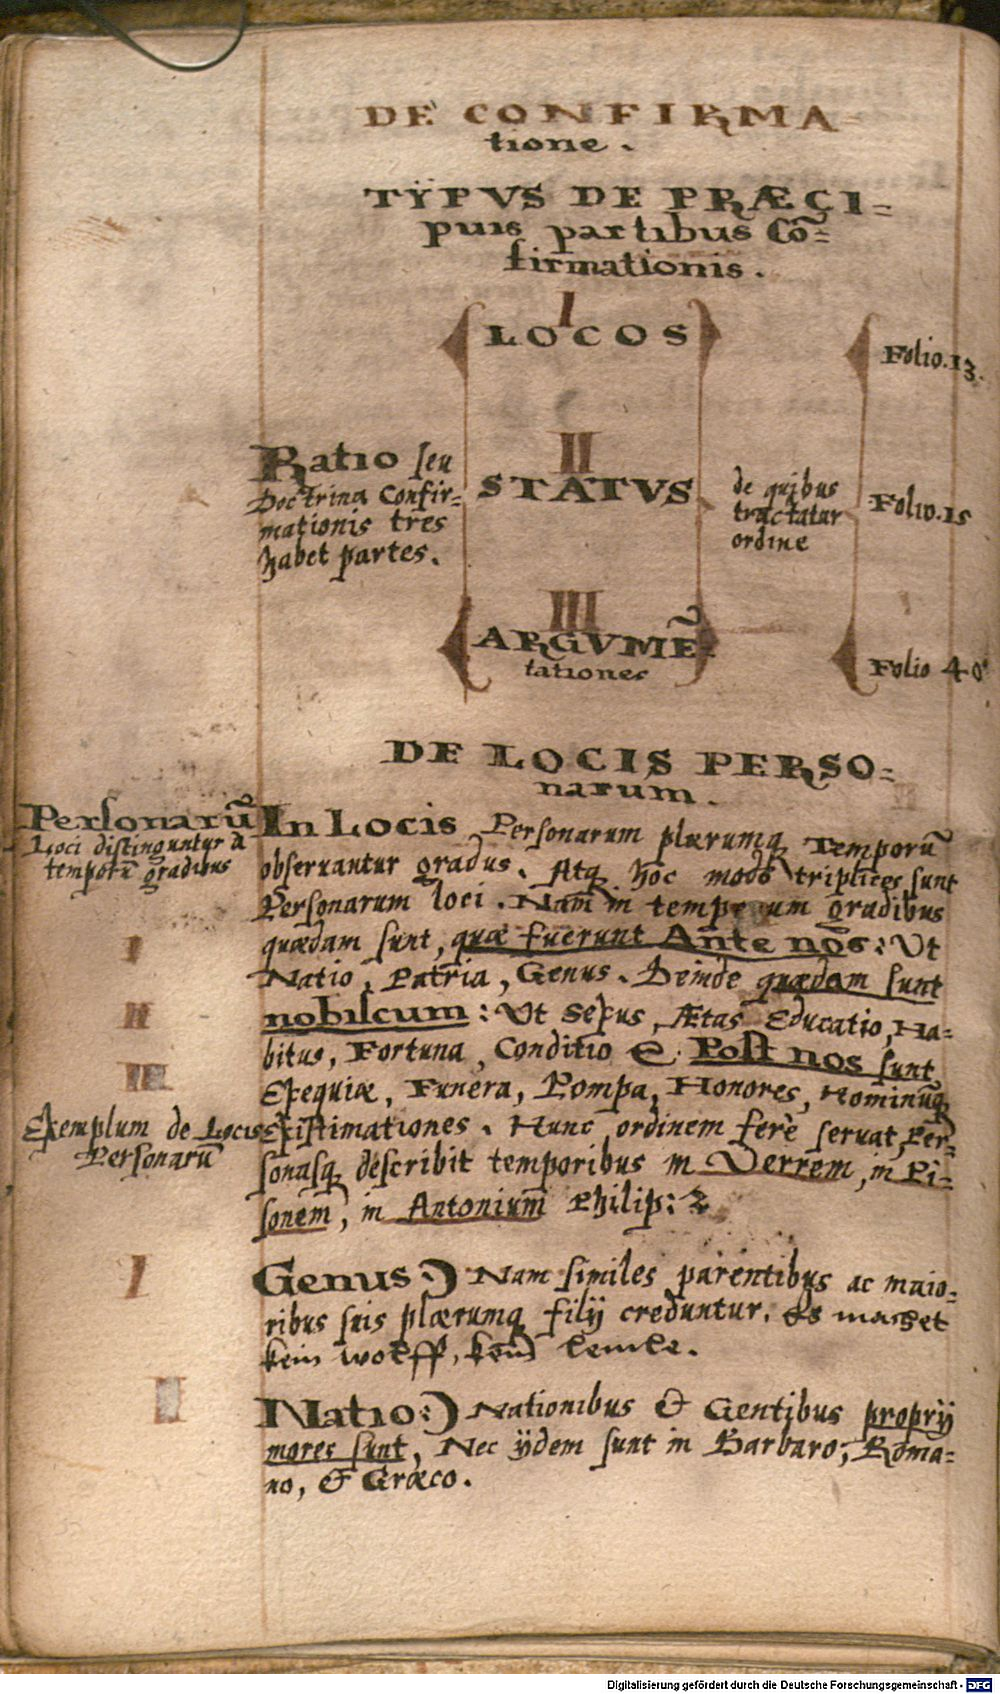 DE CONFIRMA-
tione.
TŸPVS DE PRÆCI-
puis partibus Cõ-
firmationis.
I
LOCOS
Folio.13.
II
Ratio seu
Doctrina Confir-
mationis tres
habet partes.
STATVS
de quibus
tractatur
ordine
Folio.15
III
ARGVMẼ-
tationes
Folio 40
DE LOCIS PERSO-
narum.
Personarũ
Loci distinguntur à
temporũ gradibus
In Locis Personarum plærumq Temporũ
obseruantur gradus. Atq hoc modo triplices sunt
Personarum loci. Nam in temporum gradibus
quædam sunt, quæ fuerunt Ante nos: Vt
I
Natio, Patria, Genus. Deinde quædam sunt
II
nobiscum: Vt Sexus, Ætas Educatio, Ha-
bitus, Fortuna, Conditio &. Post nos sunt
III
Exequiæ, Funera, Pompa, Honores, Hominũq
Exemplum de Locis
Personarũ
Existimationes. Hunc ordinem ferè seruat, Per-
sonasq describit temporibus in Verrem, in Pi-
sonem, in Antonium Philip: 2
I
Genus:) Nam similes parentibus ac maio-
ribus suis plærumq filij creduntur. Es machet
kein wolff, kein lemle.
II
Natio:) Nationibus & Gentibus proprij
mores sunt, Nec ijdem sunt in Barbaro, Roma-
no, & Græco.
Digitalisierung gefördert durch die Deutsche Forschungsgemeinschaft - DFG